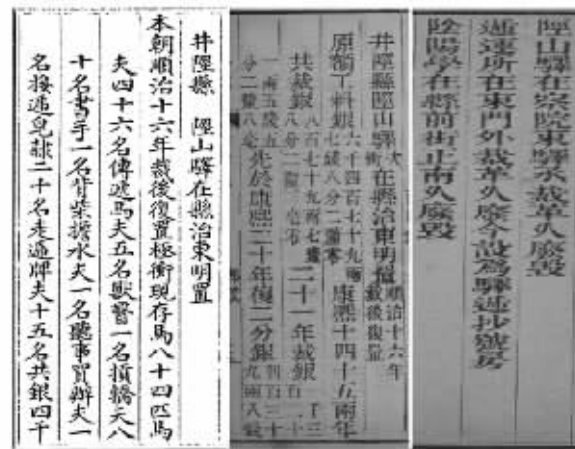 井陘縣　陘山驛在縣治東明置
本朝順治十六年裁後復置極衝現存馬八十四匹馬
夫四十六名傳遞馬夫五名獸醫一名損轎夫八
十名書手二名背柴擔水夫一名聽事買辦夫一
名接遞皂隸二十名走遞牌夫十五名共銀四千
井陘縣陘山驛次衝在縣治東明置順治十六年裁後復置
原額工料銀六千四百七十九兩七錢八分二釐零康熙十四十五兩年
共裁銀八百七十九兩七錢八分二釐二十一年裁銀
一兩五錢五分二釐八毫先於康熙二十年復二分銀
陘山驛在察院東驛丞裁革久廢毀
遞運所在東門外裁革久廢今設為驛遞抄號房
陰陽學在縣前街正南久廢毀